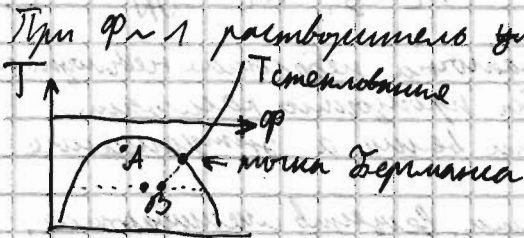 При Ф ~ 1 растворитель
T
Tстеклования
Ф
A
точка Бергманса
B